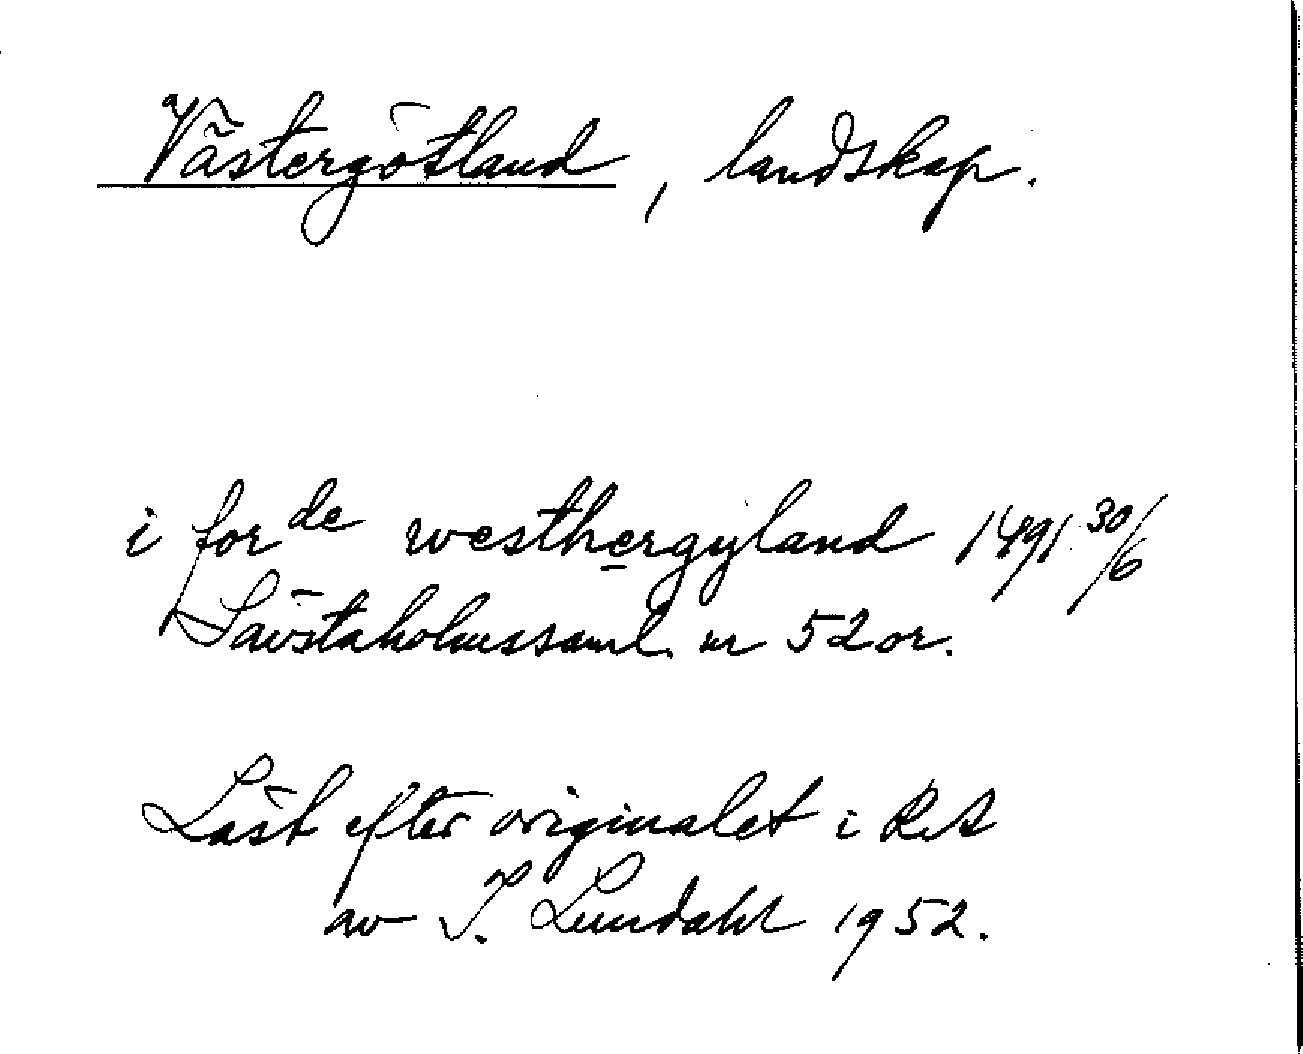 Västergötland, landskap.
i for de westhergyland 1491 30/6
Sävstaholmssaml. nr 52 or.
Läst efter originalet i RA
av I. Lundahl 1952.